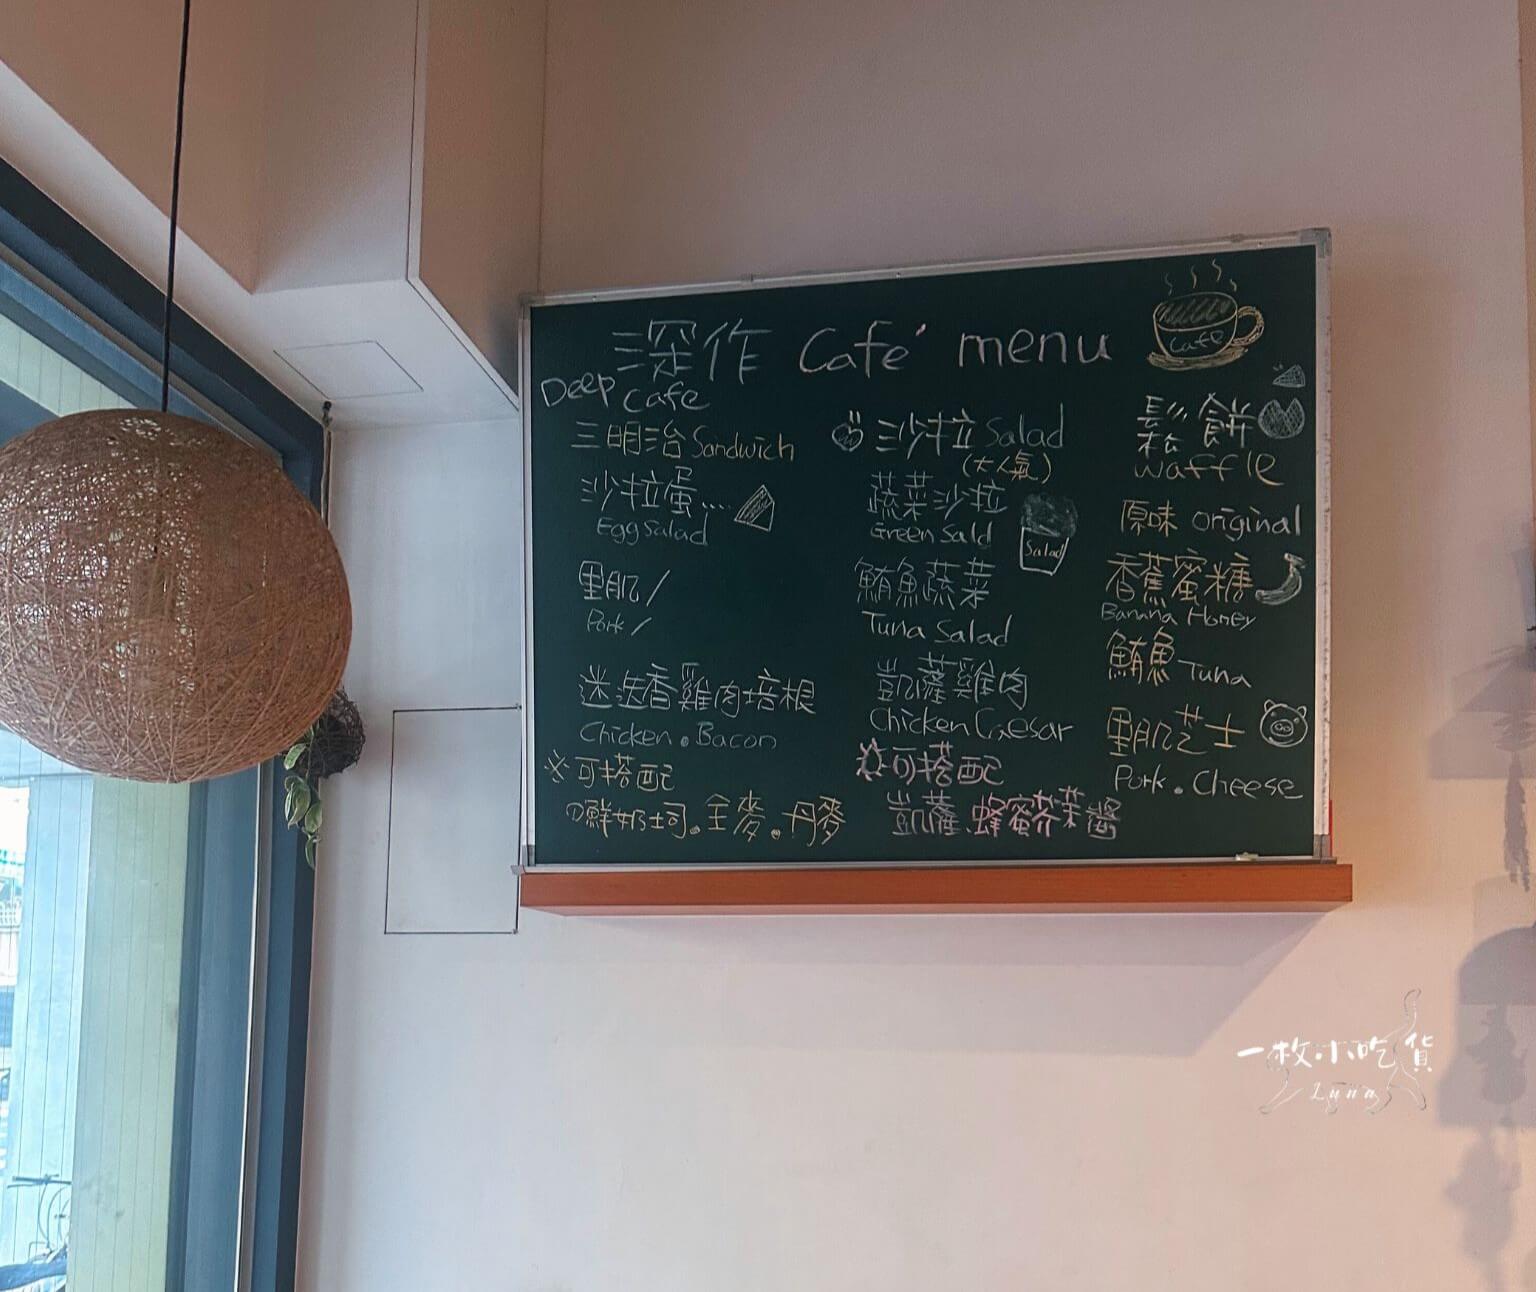 深作 Café menu
Deep cafe
cafe
三明治 Sandwich
沙拉蛋...
Egg Salad
里肌/
Pork/
迷迭香雞肉培根
Chicken.Bacon
※可搭配
鮮奶土司.全麥.丹麥
沙拉 Salad
(大人氣)
蔬菜沙拉
Green Sald
Salad
鮪魚蔬菜
Tuna Salad
凱薩雞肉
Chicken Caesar
可搭配
凱薩、蜂蜜芥茉醬
鬆餅
waffle
原味 original
香蕉蜜糖
Banana Honey
鮪魚 Tuna
里肌芝士
Pork.Cheese
一枚小吃貨
Luna